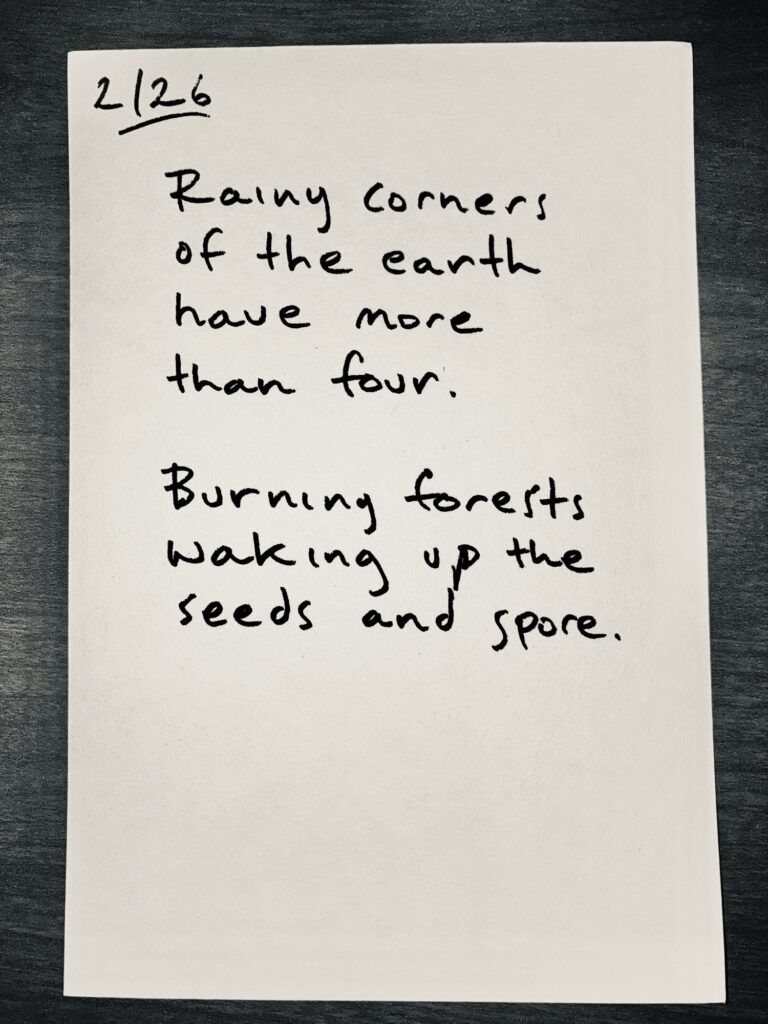 2/26
Rainy corners
of the earth
have more
than four.
Burning forests
waking up the
seeds and spore.